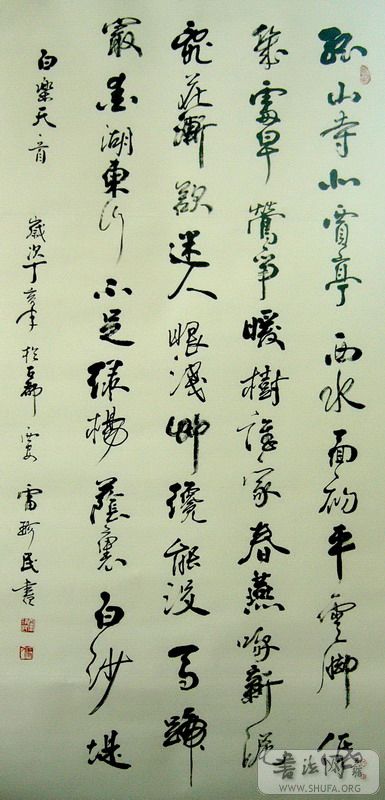 孤山寺北賈亭西水面初平雲脚低
幾處早鶯爭暖樹誰家春燕啄新泥
亂花漸欲迷人眼淺艸纔能没馬蹄
最愛湖東行不足綠楊蔭裏白沙堤
白樂天一首 歲次丁亥年於古都西安 雷珍民書
書法
WWW.SHUFA.ORG